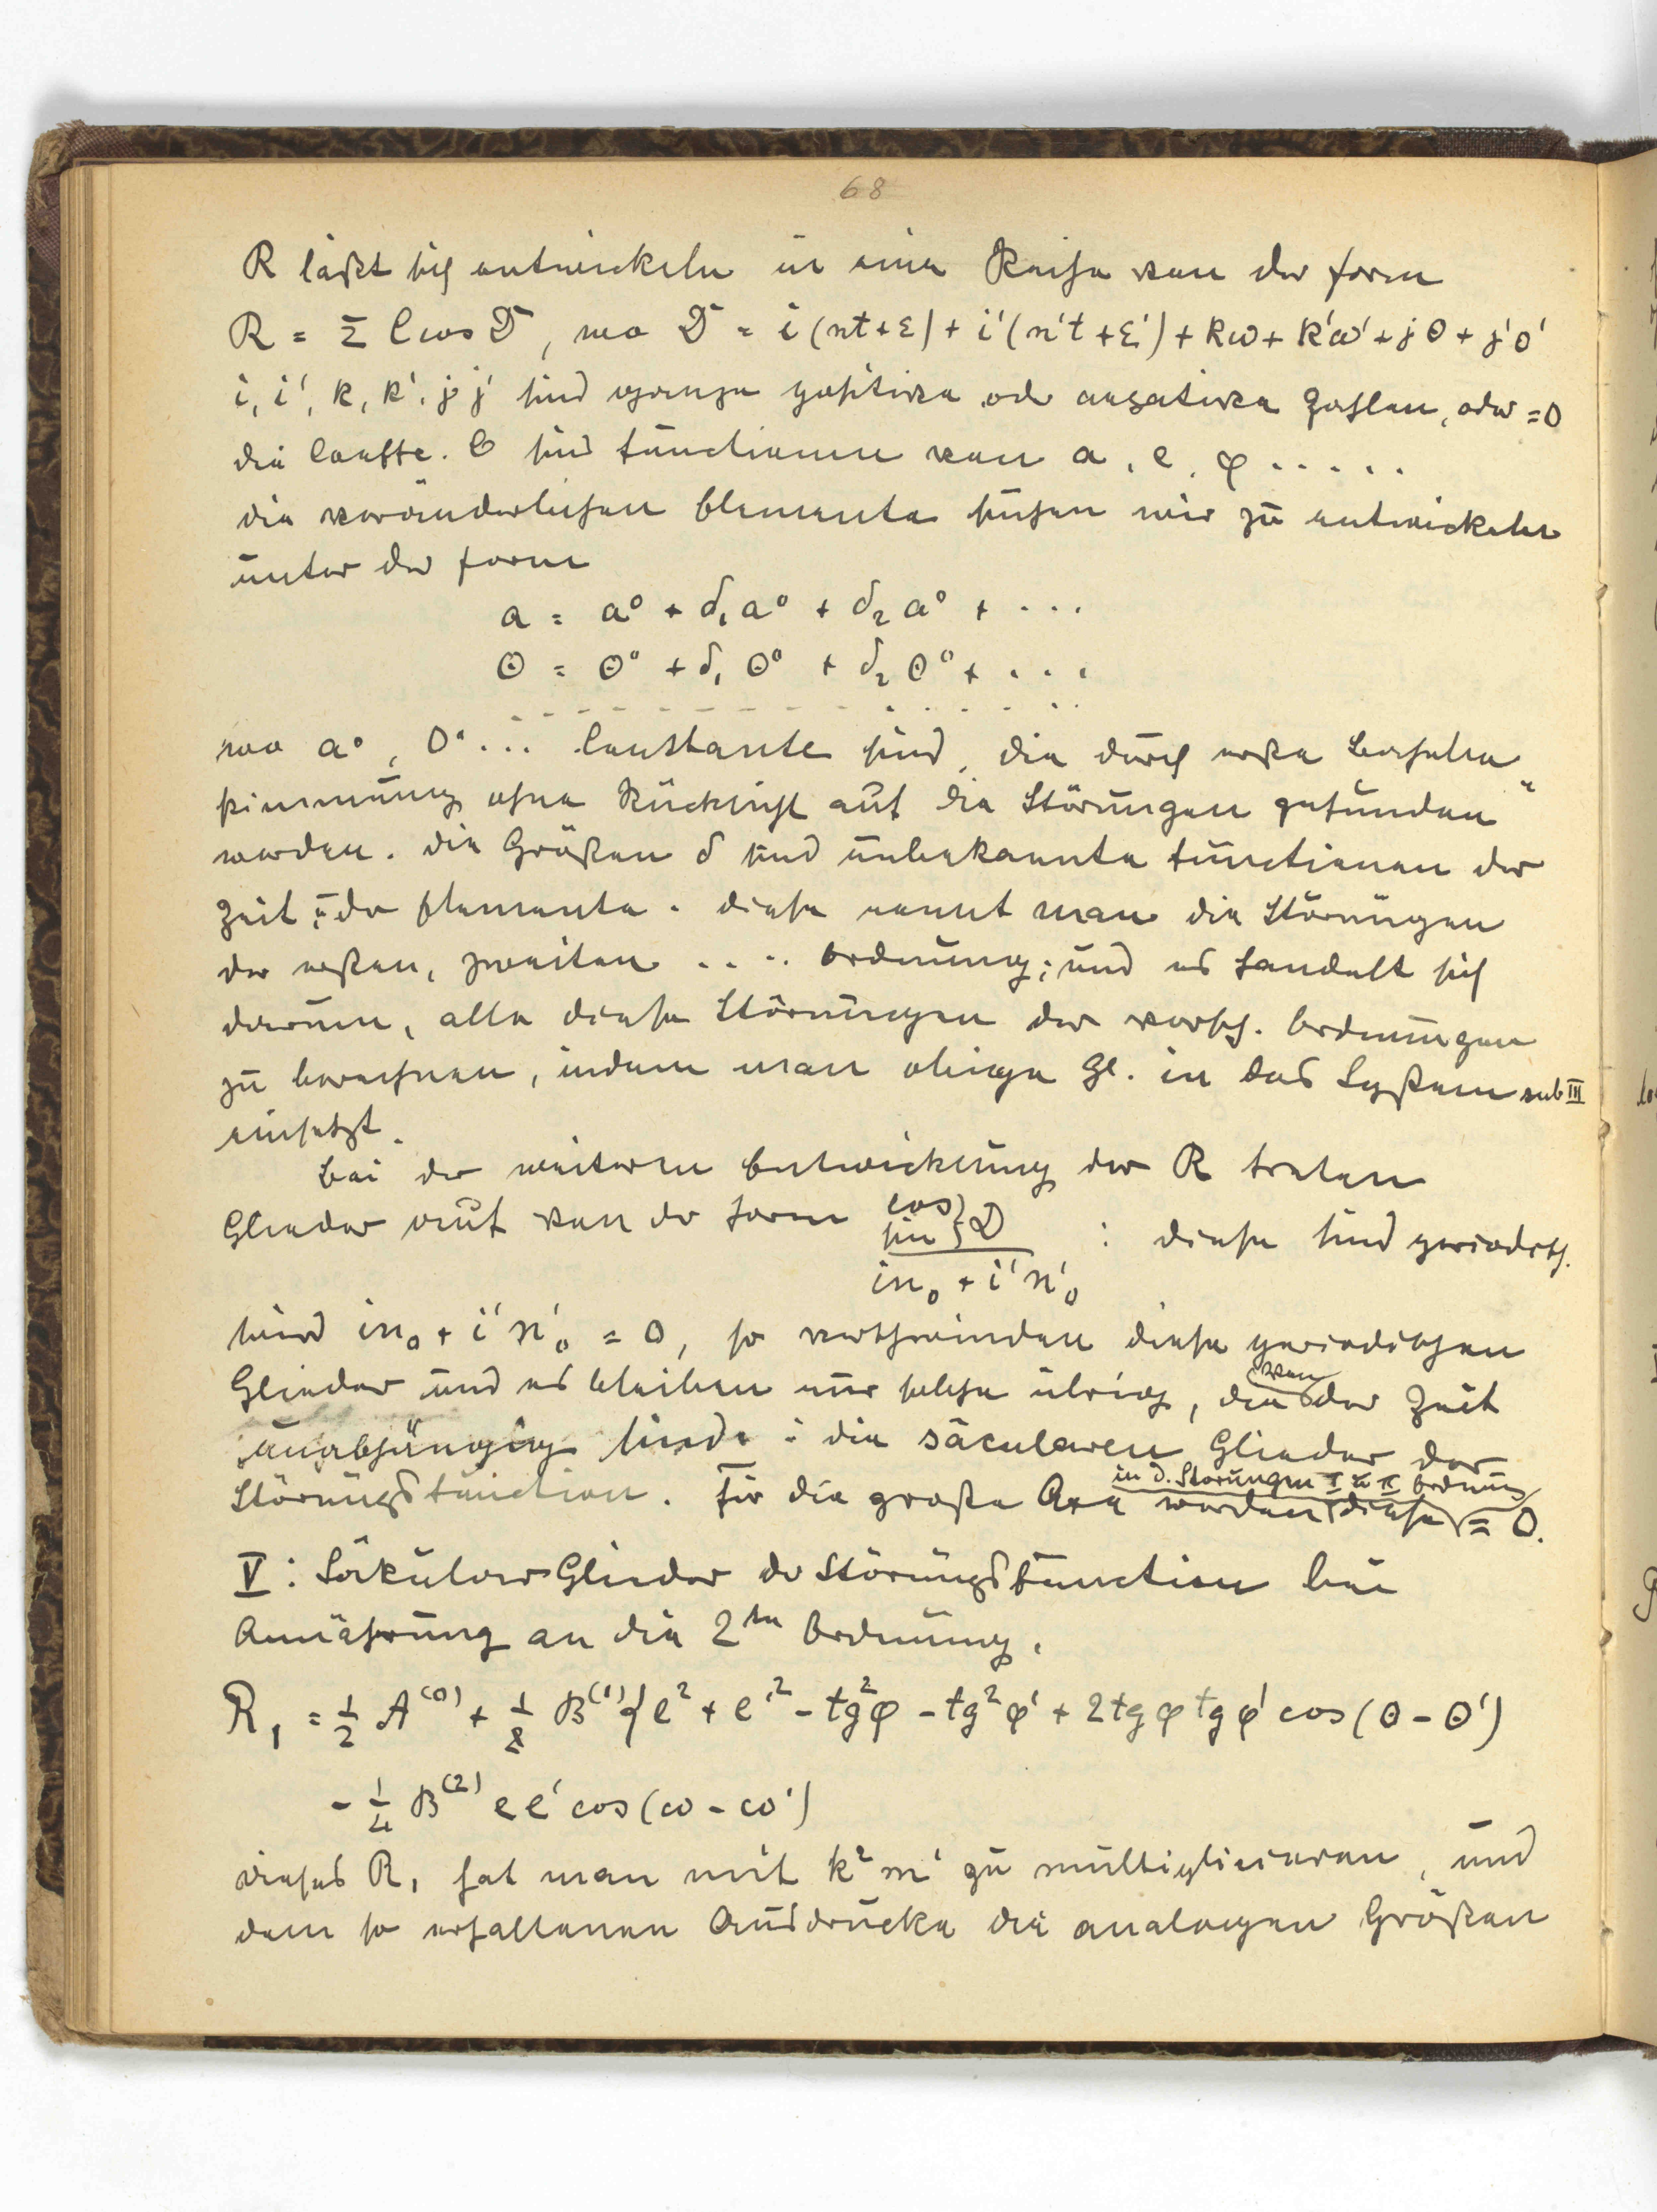 68
R läßt sich entwickeln in eine Reihe von der Form
R = Σ C cos D, wo D = i(nt+ε) + i'(n't+ε') + kω + k'ω' + jθ + j'θ'
i, i', k, k', j, j' sind ganze positive od negative Zahlen, oder = 0
die Coeffte. C sind Functionen von a, e, φ .....
die veränderlichen Elemente suchen wir zu entwickeln
unter der Form
a = a⁰ + δ₁a⁰ + δ₂a⁰ + ...
θ = θ⁰ + δ₁θ⁰ + δ₂θ⁰ + ...
wo a⁰, θ⁰... Constante sind, die durch erste Bahnbe„
stimmung ohne Rücksicht auf die Störungen gefunden
werden. die Größen δ sind unbekannte Functionen der
Zeit u. der Elemente. diese nennt man die Störungen
der ersten, zweiten .... Ordnung; und es handelt sich
darum, alle diese Störungen der versch. Ordnungen
zu berechnen, indem man obige Gl. in das System sub III
einsetzt.
Bei der weiteren Entwicklung der R treten
Glieder auf von der Form cos} sin} D / in₀ + i'n'₀ : diese sind periodisch.
Sind in₀ + i'n'₀ = 0, so verschwinden diese periodischen
Glieder und es bleiben nur solche übrig, die von der Zeit
unabhängig sind : die säcularen Glieder der
Störungsfunction. Für die große Axe werden diese in d. Störungen I u II Ordnung = 0.
V : Säkular Glieder der Störungsfunction bei
Annäherung an die 2ten Ordnung.
R₁ = ½ A⁽⁰⁾ + ⅛ B⁽¹⁾{e² + e'² - tg²φ - tg²φ' + 2tgφ tgφ' cos(θ - θ')
- ¼ B⁽²⁾ e e' cos(ω - ω')
dieses R₁ hat man mit k²m' zu multiplicieren, und
dem so erhaltenen Ausdrucke die analogen Größen